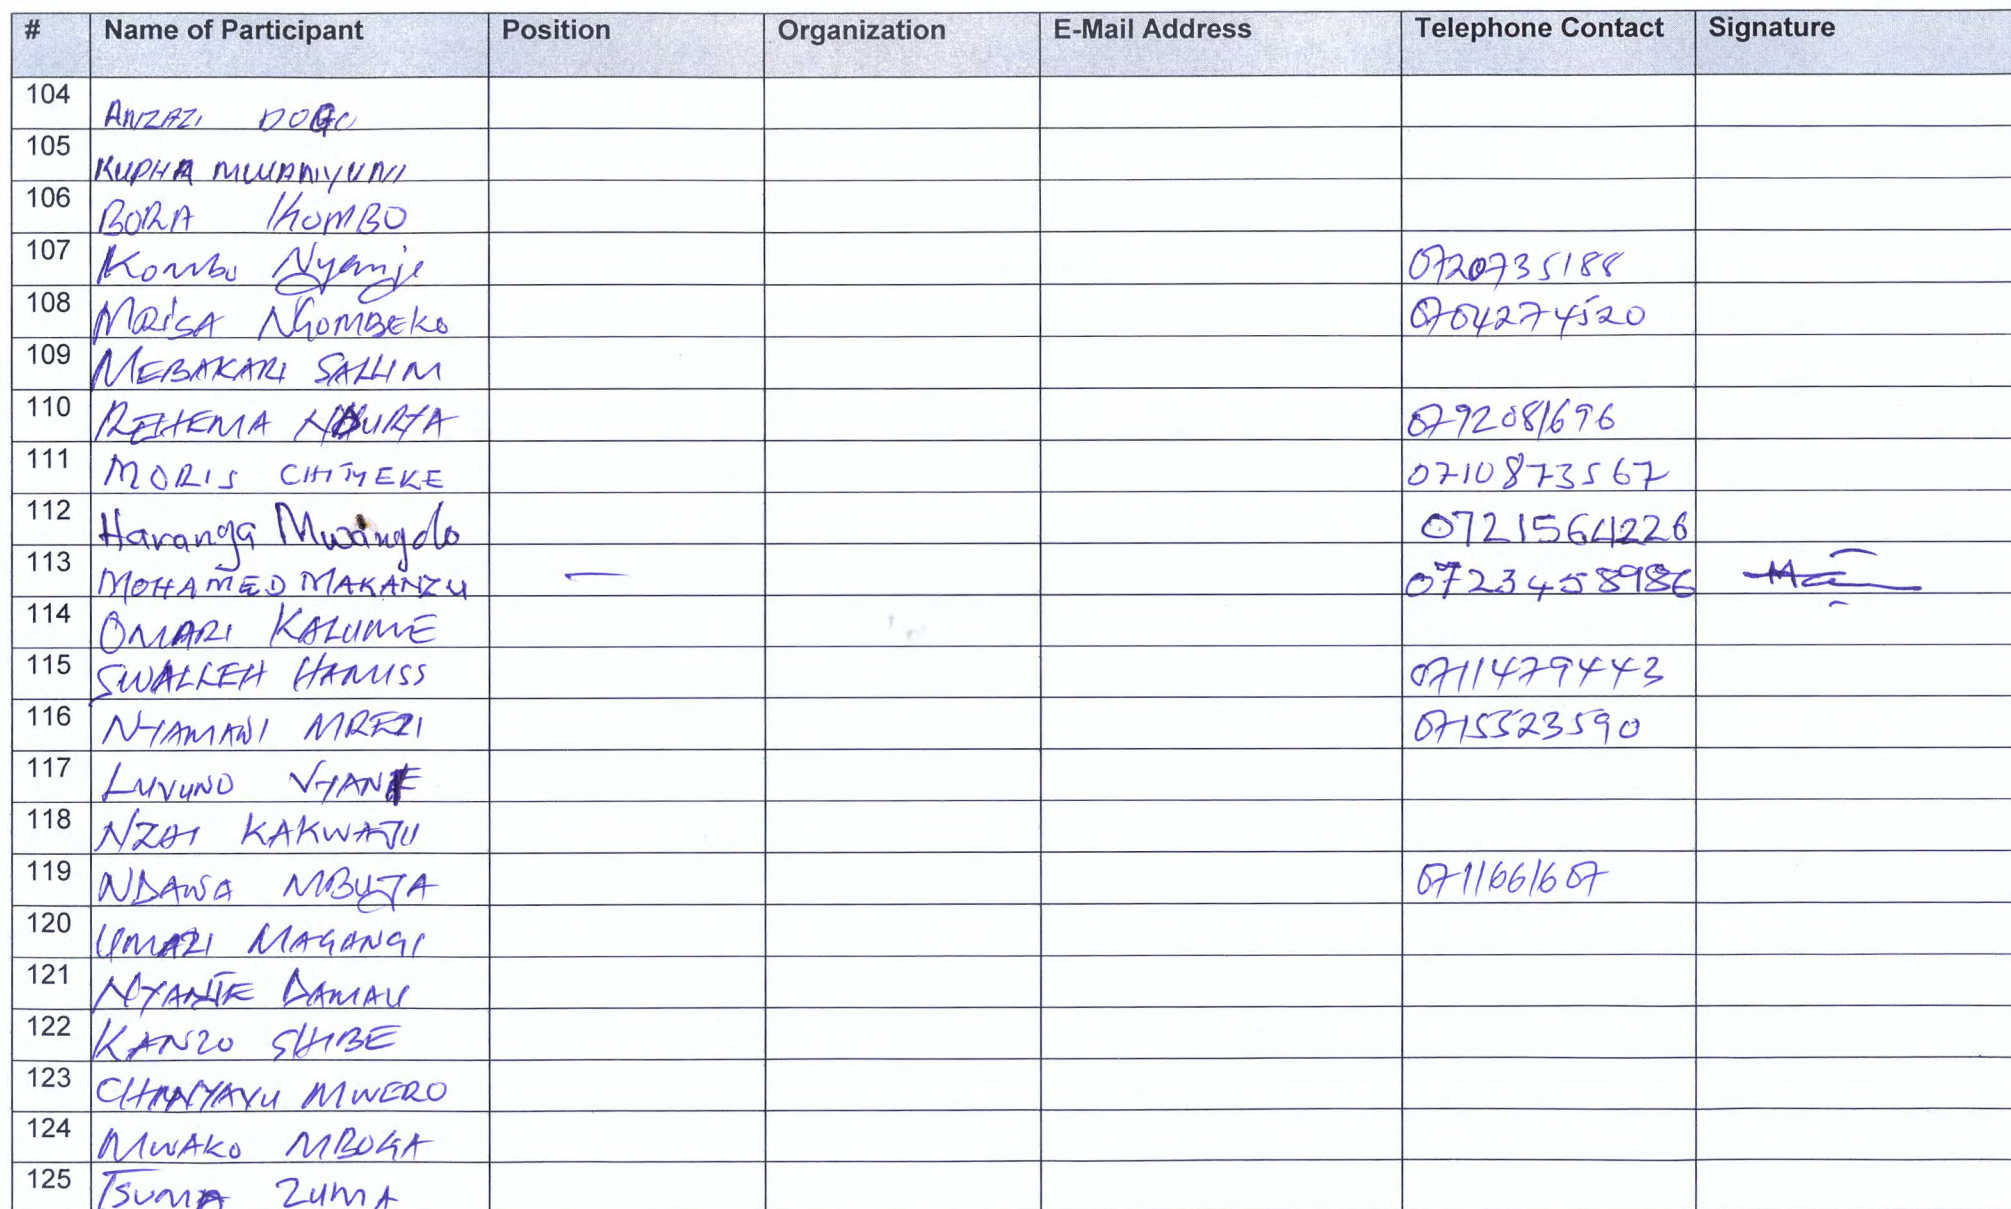 # Name of Participant Position Organization E-Mail Address Telephone Contact Signature
104 ANZAZI DOGO
105 KUPHA MWANIYUNI
106 BORA KOMBO
107 Kombo Nyanje 0720735188
108 MRISA NGOMBEKO 0704274520
109 MEBAKARI SALLIM
110 REHEMA NDURYA 0792081696
111 MORIS CHITYEKE 0710873567
112 Haranga Mwangolo 0721564226
113 MOHAMED MAKANZU — 0723458986
114 OMARI KALUME
115 SWALLEH HAMISS 0711479443
116 NYAMAWI MREZI 0715523590
117 LUVUNO
118 NZAI KAKWAJU
119 NDAWA MBUJA 0711661607
120 UMAZI MAGANGI
121 NYANJE DAMAU
122 KANZO SHIBE
123 CHINYAVU MWERO
124 MWAKO MBOGA
125 TSUMA ZUMA